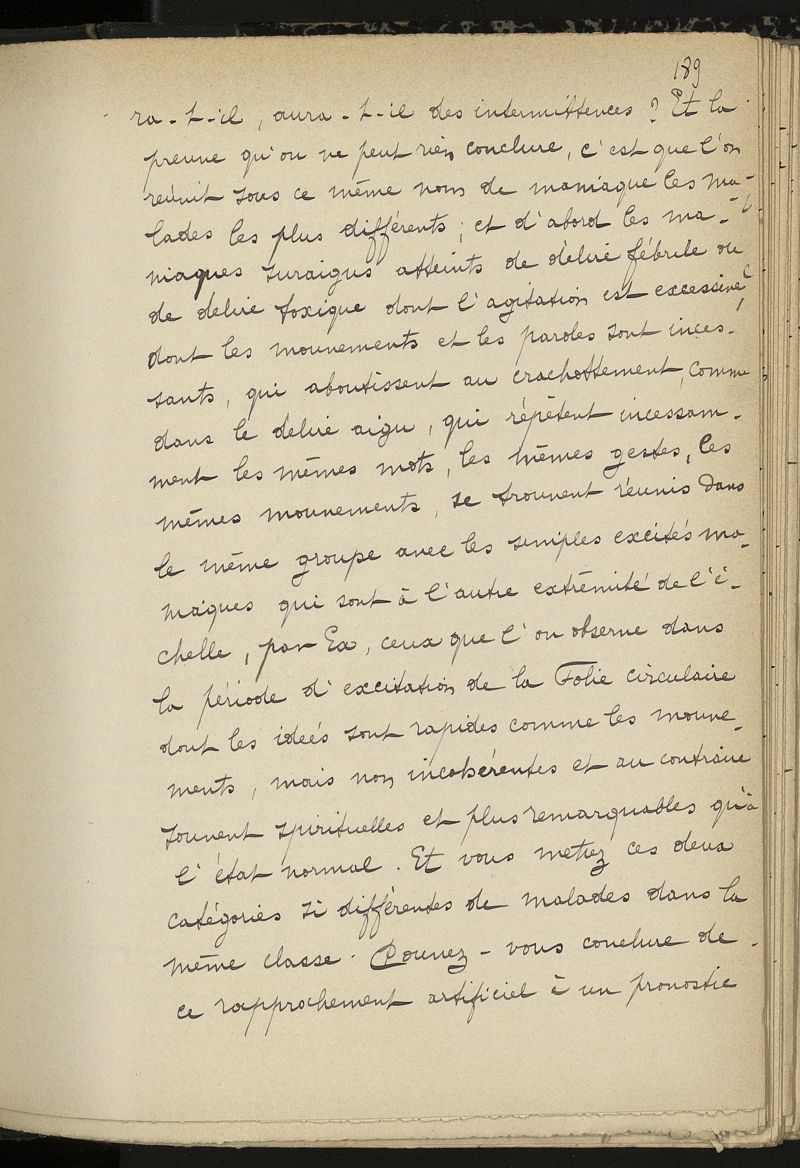 189
ra-t-il, aura-t-il des intermittences ? Et la
preuve qu'on ne peut rien conclure, c'est que l'on
réunit sous ce même nom de maniaque les ma-
lades les plus différents ; et d'abord les ma-
niaques suraigus atteints de délire fébrile ou
de délire toxique dont l'agitation est excessive,
dont les mouvements et les paroles sont inces-
sants, qui aboutissent au crachottement, comme
dans le délire aigu, qui répètent incessam-
ment les mêmes mots, les mêmes gestes, les
mêmes mouvements, se trouvent réunis dans
le même groupe avec les simples excités ma-
niaques qui sont à l'autre extrémité de l'é-
chelle, par Ex, ceux que l'on observe dans
la période d'excitation de la Folie circulaire
dont les idées sont rapides comme les mouve-
ments, mais non incohérentes et au contraire
souvent spirituelles et plus remarquables qu'à
l'état normal. Et vous mettez ces deux
catégories si différentes de malades dans la
même classe. Pouvez-vous conclure de
ce rapprochement artificiel à un pronostic